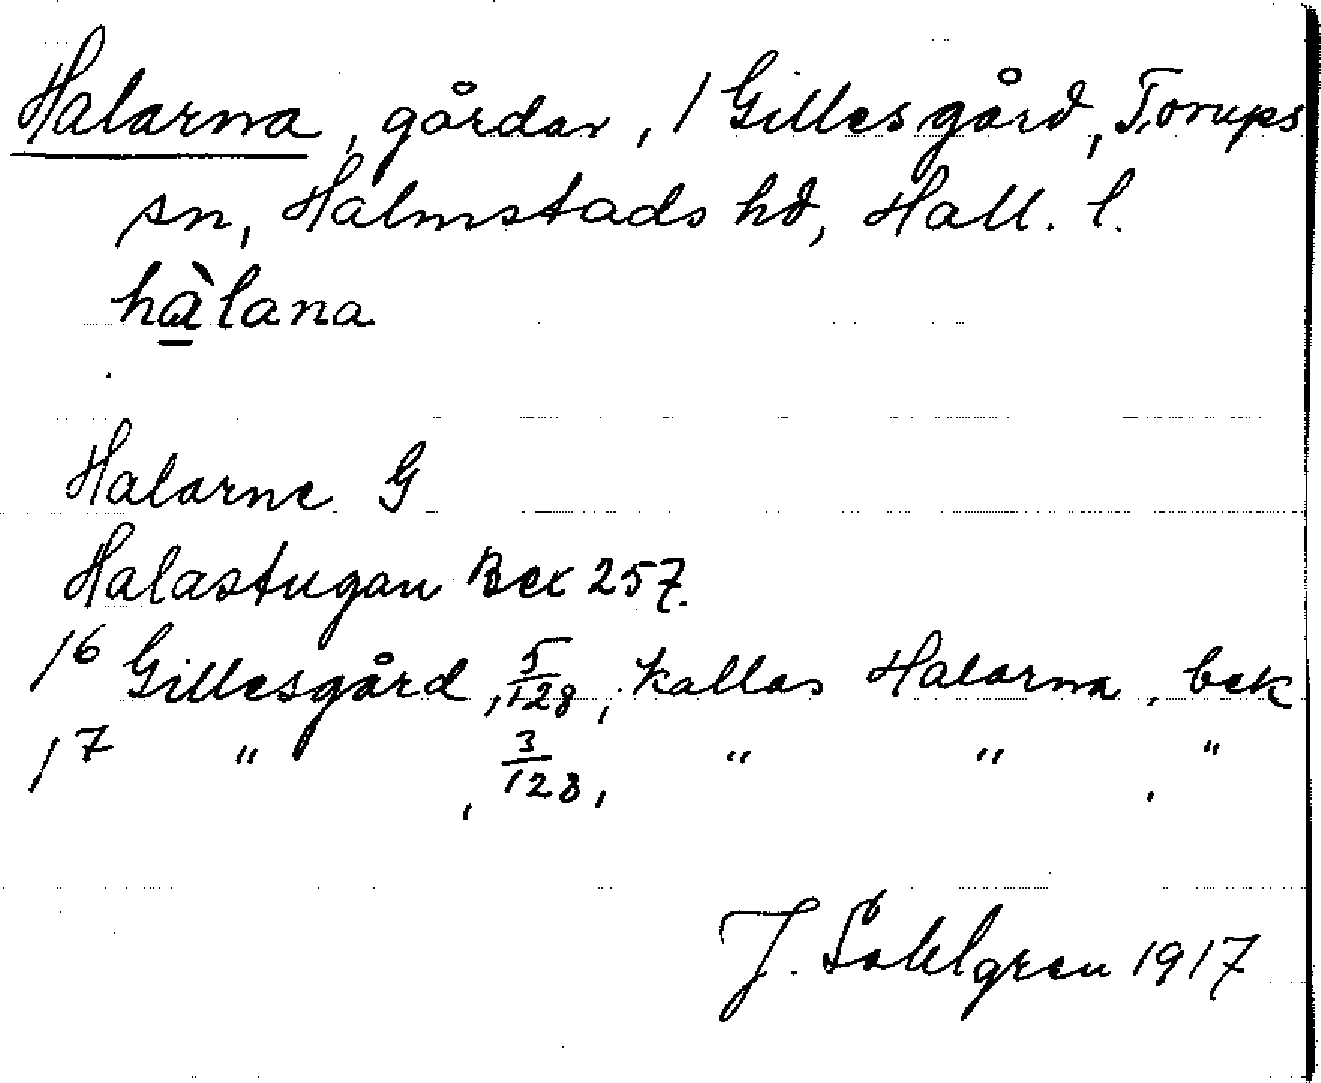 Halarna, gårdar, 1 Gillesgård, Torups
sn, Halmstads hd, Hall. l.
hàlana
Halarne G
Halastugan Bex 257.
16 Gillesgård, 5/128, kallas Halarna, bek
17 " , 3/128, " " , "
J. Sahlgren 1917